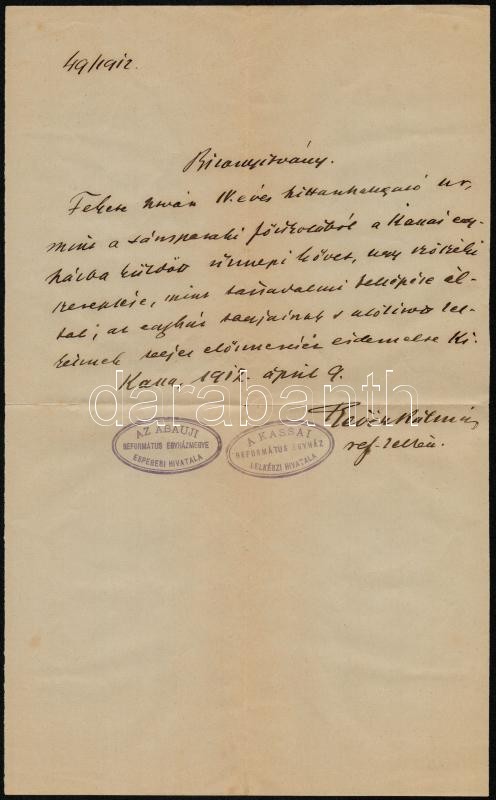 49/1912.
Bizonyítvány.
Fekete István IV. éves hittanhallgató ur,
mint a sárospataki főiskolából a Kassai egy-
házba küldött ünnepi követ, ugy szószéki
szereplése, mint társadalmi fellépése ál-
tal; az egyház tagjainak s alólirott lel-
késznek teljes elismerését érdemelte ki.
Kassa, 1912. április 9.
Révész Kálmán
ref. lelkész.
AZ ABAUJI
REFORMÁTUS EGYHÁZMEGYE
ESPERESI HIVATALA
A KASSAI
REFORMÁTUS EGYHÁZ
LELKÉSZI HIVATALA
darabanth